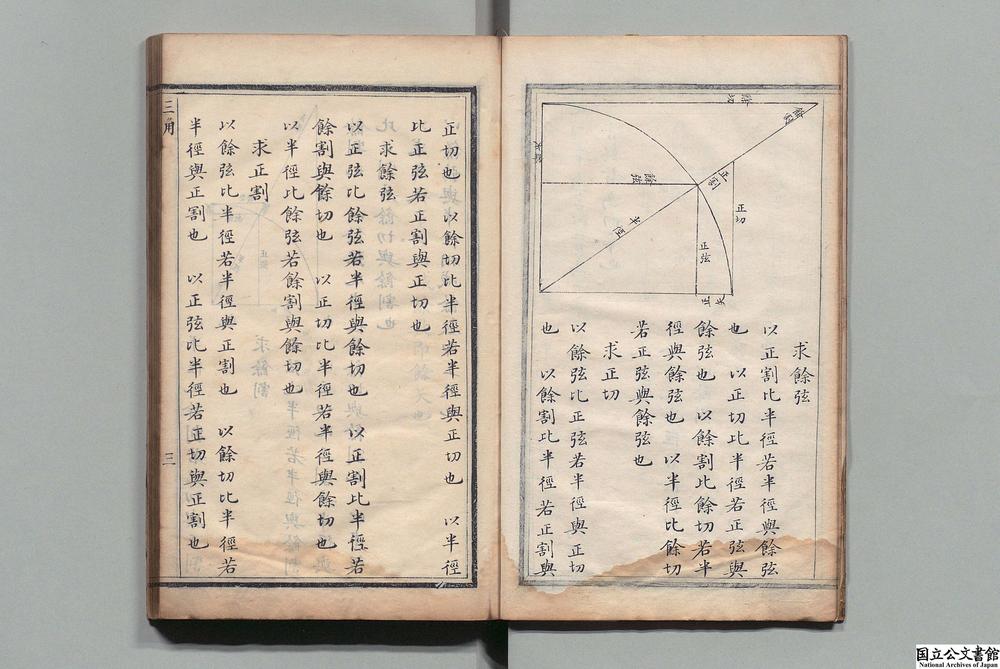 餘切
餘割
正割
正切
餘弦
半徑
正弦
正矢
求餘弦
以正割比半徑若半徑與餘弦
也　以正切比半徑若正弦與
餘弦也　以餘割比餘切若半
徑與餘弦也　以半徑比餘切
若正弦與餘弦也
求正切
以餘弦比正弦若半徑與正切
也　以餘割比半徑若正割與
正切也　以餘切比半徑若半徑與正切也　以半徑
比正弦若正割與正切也
求餘切
以正弦比餘弦若半徑與餘切也　以正割比半徑若
餘割與餘切也　以正切比半徑若半徑與餘切也
以半徑比餘弦若餘割與餘切也
求正割
以餘弦比半徑若半徑與正割也　以餘切比半徑若
半徑與正割也　以正弦比半徑若正切與正割也
三角
三
国立公文書館
National Archives of Japan